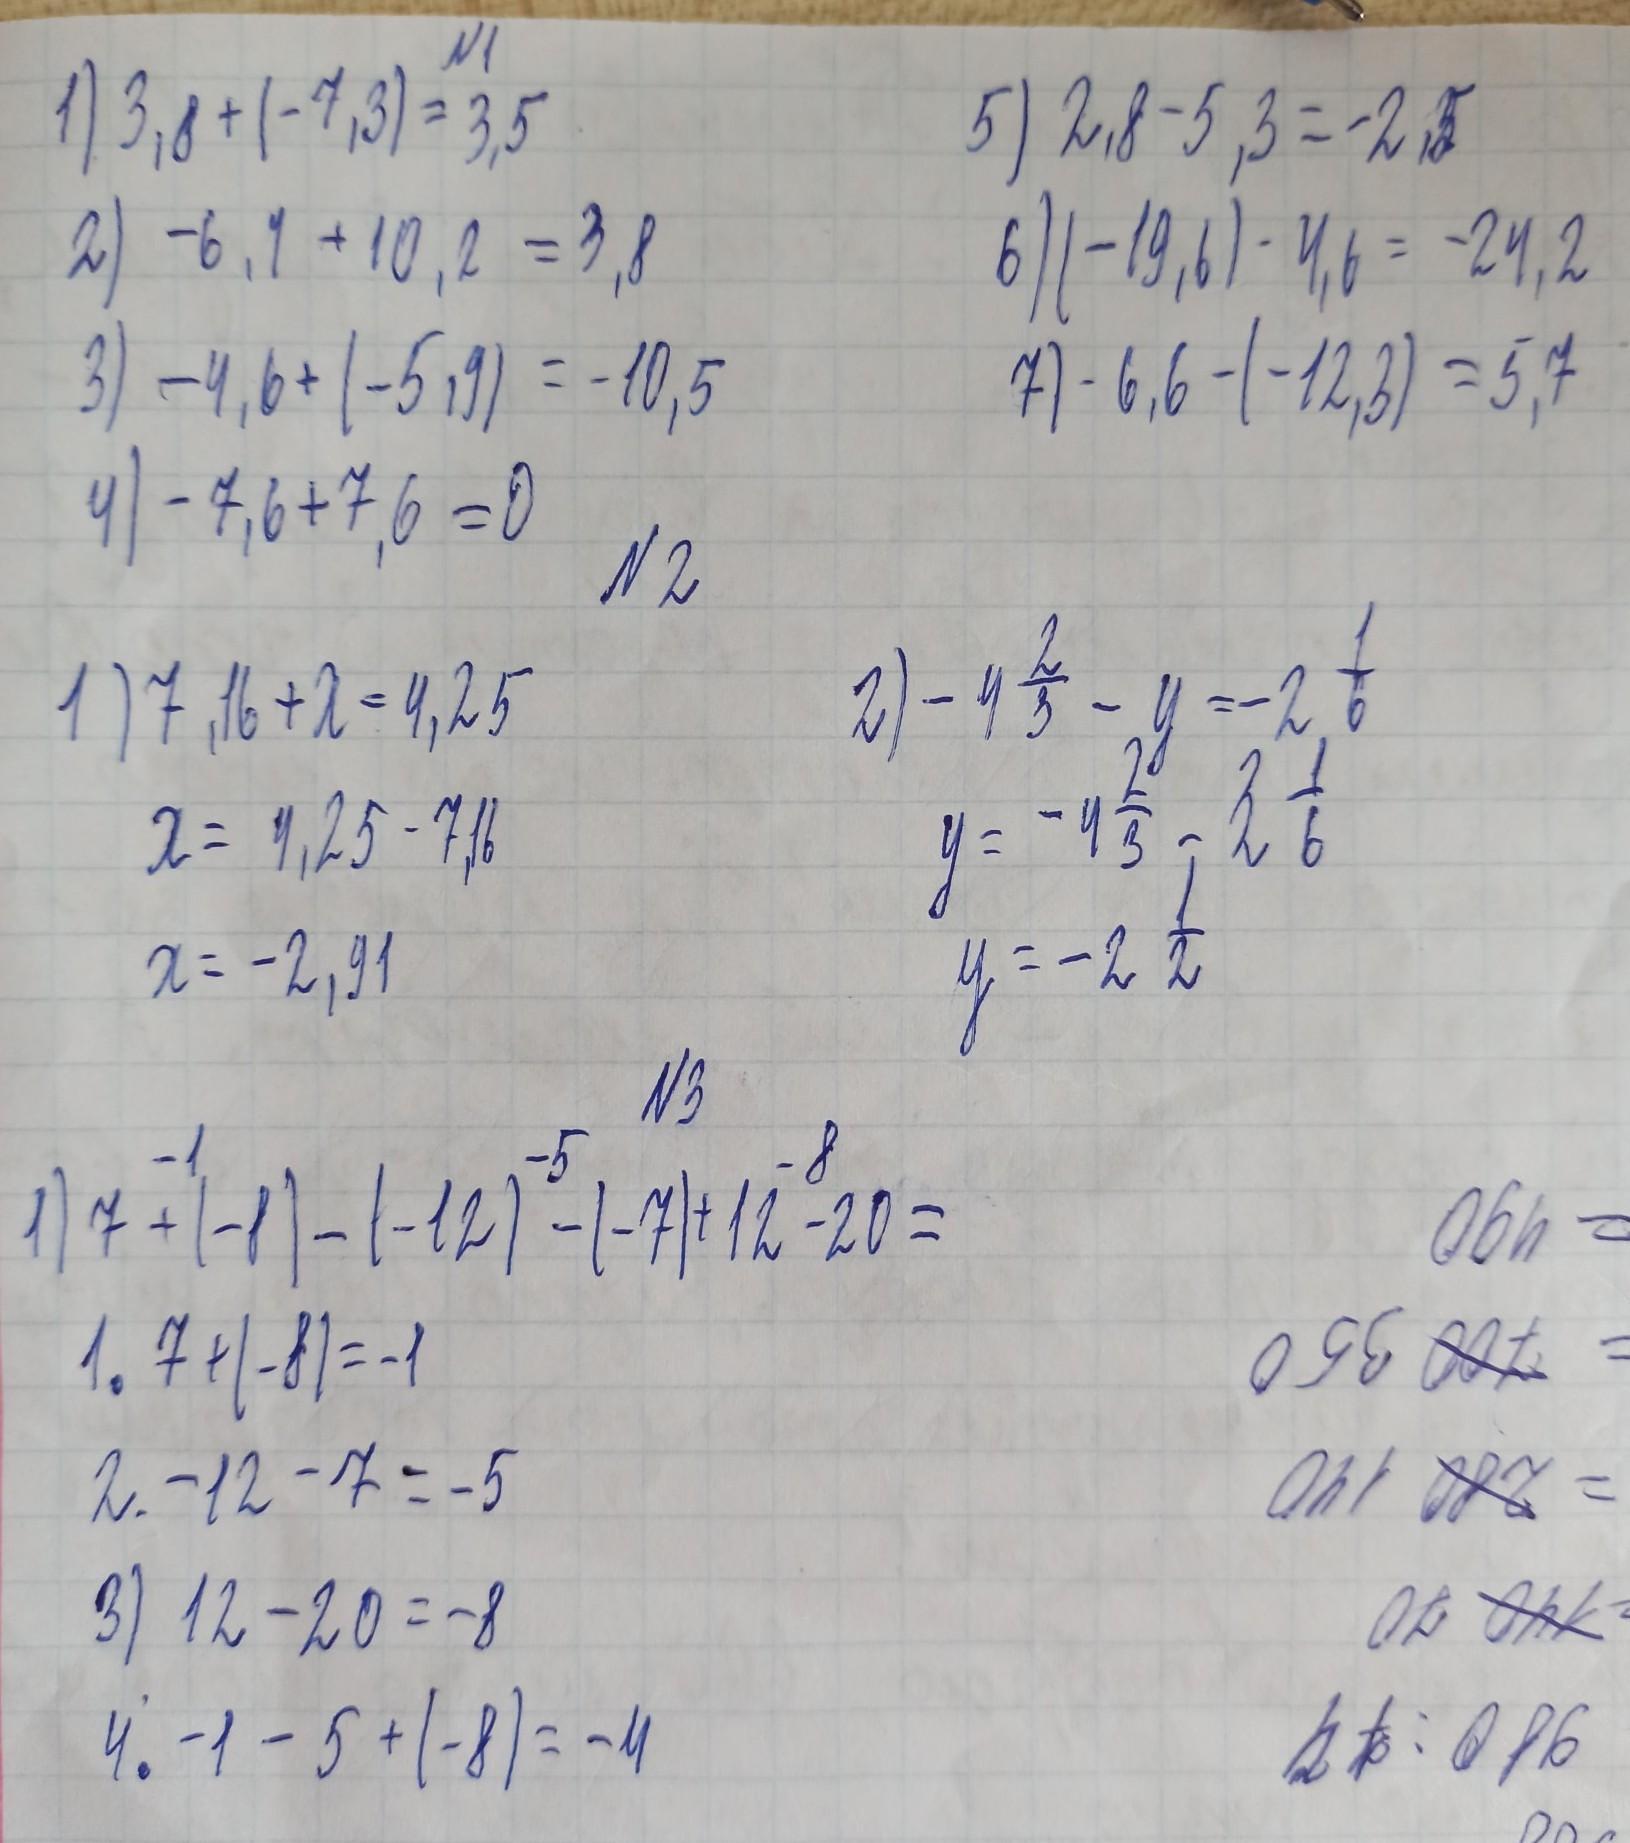 N1
1) 3,8 + (-7,3) = 3,5
2) -6,4 + 10,2 = 3,8
3) -4,6 + (-5,9) = -10,5
4) -7,6 + 7,6 = 0
5) 2,8 - 5,3 = -2,5
6) (-19,6) - 4,6 = -24,2
7) -6,6 - (-12,3) = 5,7
N2
1) 7,16 + x = 4,25
x = 4,25 - 7,16
x = -2,91
2) -4 2/3 - y = -2 1/6
y = -4 2/3 - 2 1/6
y = -2 1/2
N3
-1 -5 -8
1) 7 + (-8) - (-12) - (-7) + 12 - 20 =
1. 7 + (-8) = -1
2. -12 - 7 = -5
3) 12 - 20 = -8
4. -1 - 5 + (-8) = -4
980 :
= 140 70
= 280 140
= 700 350
= 490